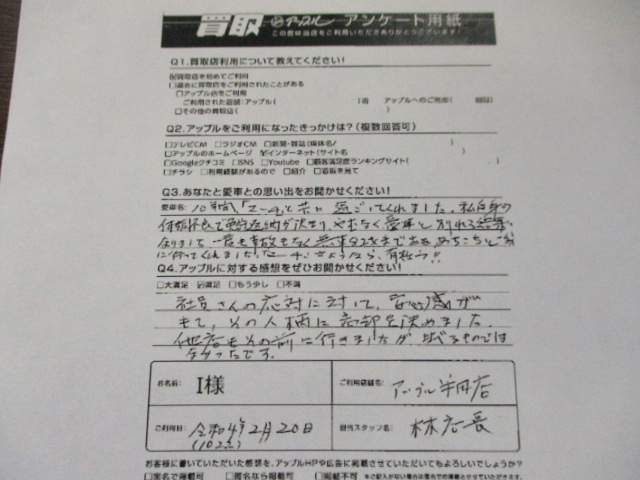 買取 アップル アンケート用紙
この度は当店をご利用いただきありがとうございます!
Q1.買取店利用について教えてください!
☑買取店を初めてご利用
□過去に買取店をご利用されたことがある
□アップル店をご利用
ご利用された店舗:アップル( )店 アップルへのご売却( 回目)
□その他の買取店( )
Q2.アップルをご利用になったきっかけは?(複数回答可)
□テレビCM □ラジオCM □新聞・雑誌(媒体名/ )
□アップルのホームページ ☑インターネット(サイト名 )
□Googleクチコミ □SNS □Youtube □顧客満足度ランキングサイト( )
□チラシ □利用経験があるので □紹介 □看板を見て
Q3.あなたと愛車との思い出をお聞かせください!
愛車名: 10年間「マーチ」と共に過ごしてくれました。私自身の
体調不良で 愛車と別れる
一度も事故もなく 走 まで あちこちと
に行ってくれました。「マーチ」さようなら、有難う!!
Q4.アップルに対する感想をぜひお聞かせください!
□大満足 ☑満足 □もう少し □不満
社員さんの応対に対して、安心感が
もて、その人柄に売却を決めました。
他店もその前に行きましたが、比べるものでは
なかったです。
お名前: I様 ご利用店舗名: アップル半田店
ご利用日: 令和4年2月20日 担当スタッフ名: 林店長
お客様に書いていただいた感想を、アップルHPや広告に掲載させていただいてもよろしいでしょうか?
□実名で掲載可 □匿名なら掲載可 □掲載不可